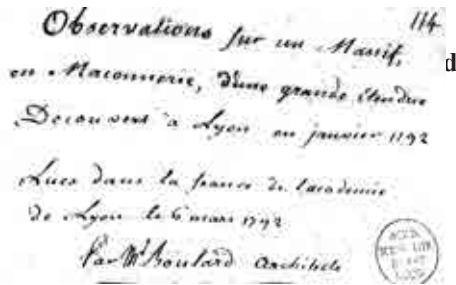 114
Observations sur un Massif,
en Maconnerie, d'une grande étendue
d
Decouvert a Lyon en janvier 1792
Lues dans la seance de lacademie
de Lyon le 6 mars 1792
Par Mr Boulard architecte